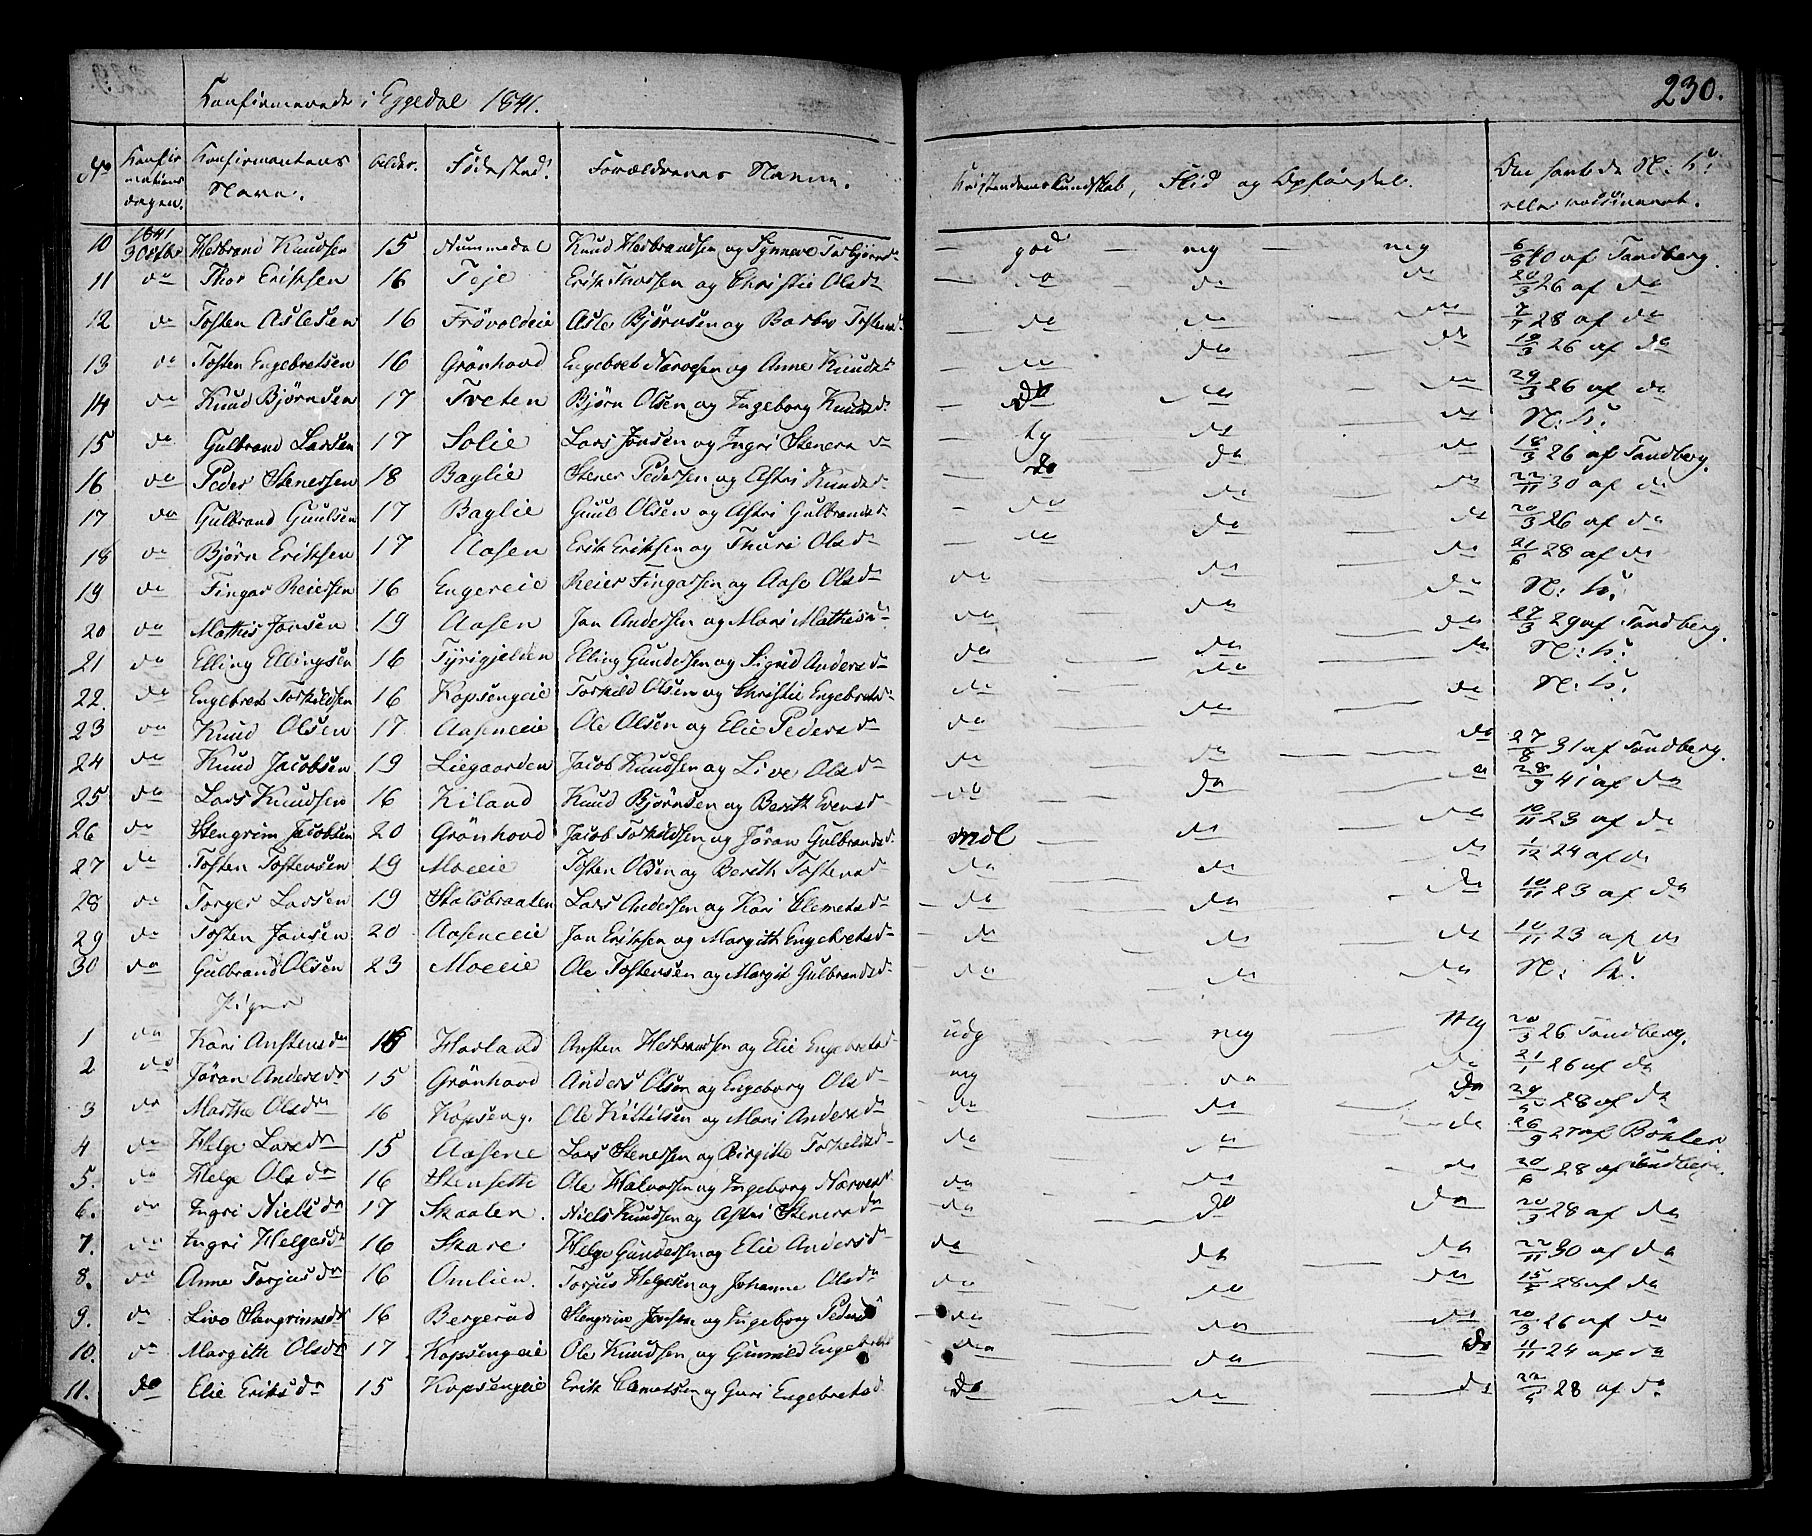 Konfirmerede i Eggedal 1841.
230.
No Konfirmationsdagen. Konfirmantens Navn. Alder. Fødested. Forældrenes Navne. Kristendomskundskab, Flid og Opførsel. Den havde N: K: eller vaccineret.
10 1841 30 Knud Herbrand Knudsen 15 Nummedal Knud Herbrandsen og Synneve Torbjørnsd — god — mg — mg 6/8 40 af Tandberg.
11 do Thor Eriksen 16 Teje Erik Thorsen og Christie Olsdr — do do do 20/3 26 af do
12 do Tosten Aslesen 16 Frövoldeie Asle Bjørnsen og Barbro Tostensd — do do do 28 af do
13 do Tosten Engebretsen 16 Grönhovd Engebret Narvesen og Anne Knudsd — do do do 19/3 26 af do
14 do Knud Bjørnsen 17 Tveten Bjørn Olsen og Ingeborg Knudsd. — do do do 29/3 26 af do
15 do Gulbrand Larsen 17 Solie Lars Jonsen og Ingri Stenersd — tg do do N: K:
16 do Peder Stenersen 18 Baglie Stener Pedersen og Astri Knudsd — do do do 18/3 26 af Tandberg.
17 do Gulbrand Guulsen 17 Baglie Guul Olsen og Astri Gulbrandsd — do do do 22/11 30 af do
18 do Björn Eriksen 17 Aasen Erik Eriksen og Thuri Olsdr — do do do 20/3 26 af do
19 do Fingar Reiersen 16 Engereie Reier Fingarsen og Aase Olsdr do do do 21/6 28 af do
20 do Mathis Jonsen 19 Aasen Jon Andersen og Mari Mathisd do do do N: K:
21 do Elling Ellingsen 16 Tyrigjelden Elling Gundersen og Sigrid Andersd do do do 27/3 29 af Tandberg.
22. do Engebret Torkildsen 16 Kopsengeie Torkild Olsen og Christie Engebretsd do do do N: K:
23 do Knud Olsen 17 Aaseneeie Ole Olsen og Elie Pedersd do do do N: K:
24 do Knud Jacobsen 19 Liegaarden Jacob Knudsen og Live Olsd do do do 27/8 31 af Tandberg.
25 do Lars Knudsen 16 Kiland Knud Björnsen og Berith Evensd do do do 28/9 41 af do
26 do Stengrim Jacobsen 20 Grönhovd Jacob Torkildsen og Jöran Gulbrandsd mdl do do 10/11 23 af do
27 do Tosten Tostensen 19 Moeeie Tosten Olsen og Berith Tostensd do do do 1/12 24 af do
28 do Torger Larsen 19 Stalsbraaten Lars Andersen og Kari Clemetsd do do do 10/11 23 af do
29 do Tosten Jonsen 20 Aaseneeie Jon Eriksen og Margith Engebretsd do do do 10/11 23 af do
30 do Gulbrand Olsen 23 Moeeie Ole Tostensen og Margit Gulbrandsd do do do N: K:
Piger
1 do Kari Anstensdr 16 Horland Ansten Herbrandsen og Elie Engebretsd udg mg mg 20/3 26 Tandberg.
2 do Jöran Andersdr 15 Grönhovd Anders Olsen og Ingeborg Olsd mg do do 21/1 26 af do
3 do Marthe Olsdr 16 Kopseng. Ole Kittilsen og Mari Andersd do do do 28 af do
4 do Helge Larsdr 15 Aasene Lars Stenersen og Birgitte Torkelsd do do do 26/9 27 af Böhler
5. do Helge Olsdr 16 Stensette Ole Halvorsen og Ingeborg Narvesd do do do 20/6 28 af Tandberg.
6. do Ingri Nielsdr 17 Skaaten. Niels Knudsen og Astri Stenersd do do do 20/3 28 af do
7. do Ingri Helgesdr 16 Skare Helge Gundersen og Elie Andersd do do do 22/11 30 af do
8. do Anne Torjusdr 16 Omlien. Torjus Helgesen og Johanne Olsd do do do 15/5 28 af do
9. do Live Stengrimsdr 16 Bergerud Stengrim Jonsen og Ingeborg Pedersd do do do 20/3 26 af do
10. do Margitte Olsdr 17 Kopsengeie Ole Knudsen og Gunnild Engebretsd do do do 11/11 24 af do
11. do Elie Eriksdr 15 Kopsengeie Erik Clemetsen og Guri Engebretsd. do do do 22/5 28 af do